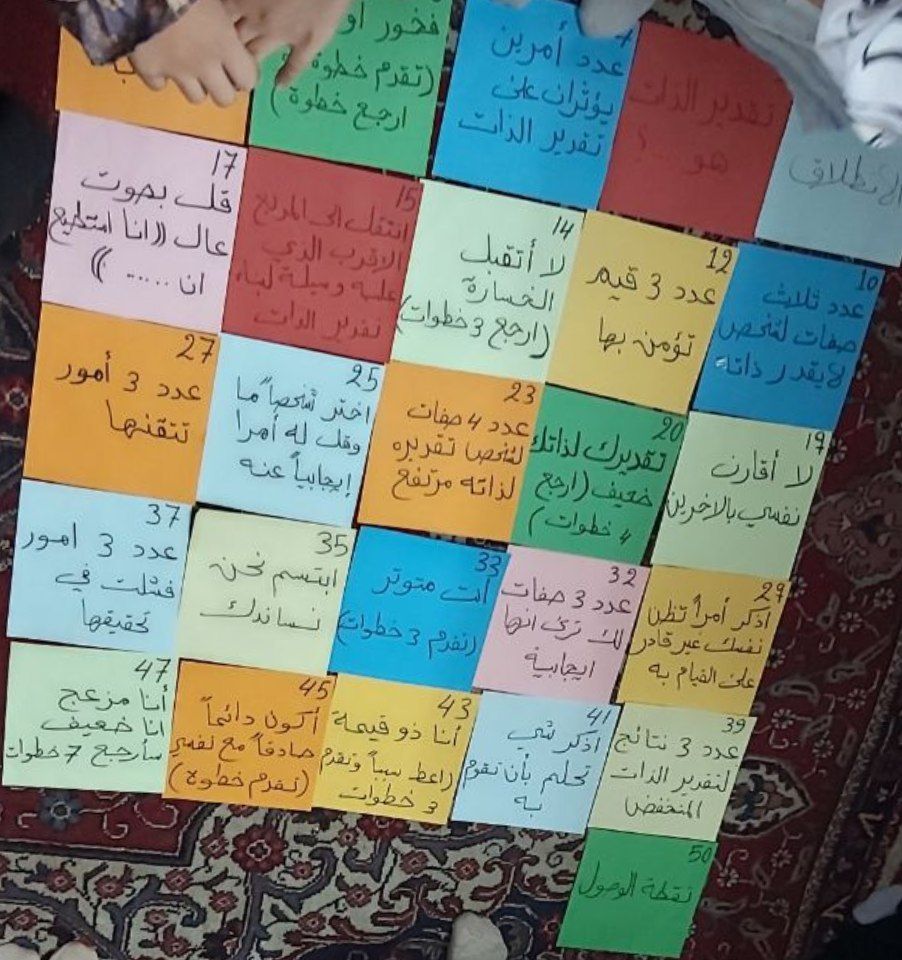 الانطلاق
تقدير الذات
هو ...؟
عدد أمرين
يؤثران على
تقدير الذات
فخور أو
(تقدم خطوة
ارجع خطوة)
10
عدد ثلاث
صفات لشخص
لا يقدر ذاته
12
عدد 3 قيم
تؤمن بها
14
لا أتقبل
الخسارة
(ارجع 3 خطوات)
15
انتقل الى المربع
الاقرب الذي
عليه وسيلة لبناء
تقدير الذات
17
قل بصوت
عال ((انا استطيع
ان ..... ))
19
لا أقارن
نفسي بالاخرين
20
تقديرك لذاتك
ضعيف (ارجع
4 خطوات)
23
عدد 4 صفات
لشخص تقديره
لذاته مرتفع
25
اختر شخصاً ما
وقل له أمرا
إيجابياً عنه
27
عدد 3 أمور
تتقنها
29
اذكر أمراً تظن
نفسك غير قادر
على القيام به
32
عدد 3 صفات
لك ترى انها
ايجابية
33
أنت متوتر
(تقدم 3 خطوات)
35
ابتسم نحن
نساندك
37
عدد 3 امور
فشلت في
تحقيقها
39
عدد 3 نتائج
لتقدير الذات
المنخفض
41
اذكر شي
تحلم بأن تقوم
به
43
أنا ذو قيمة
(اعط سبباً وتقدم
3 خطوات
45
أكون دائماً
صادقاً مع نفسي
(تقدم خطوة)
47
أنا مزعج
انا ضعيف
سأرجع 7 خطوات
50
نقطة الوصول